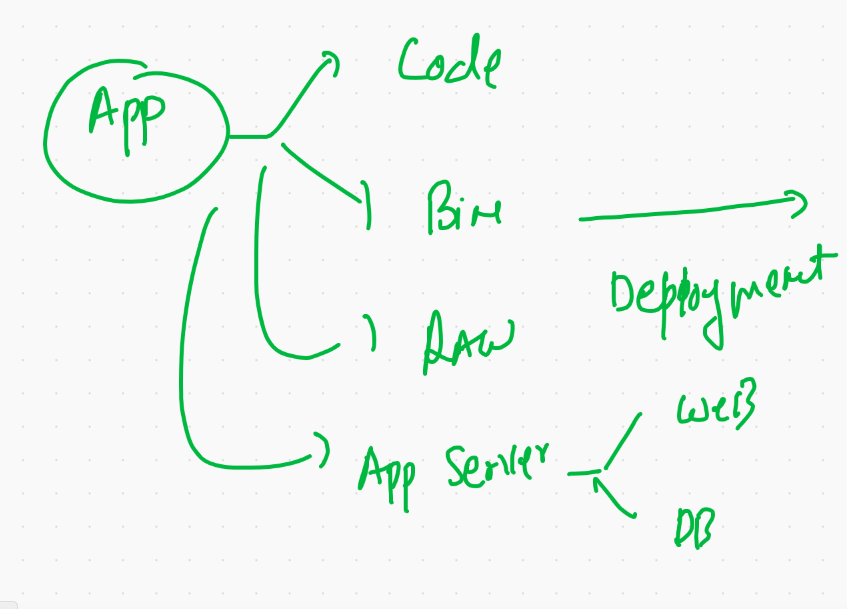 Code
App
Bin
Deployment
RAW
WEB
App Server
DB